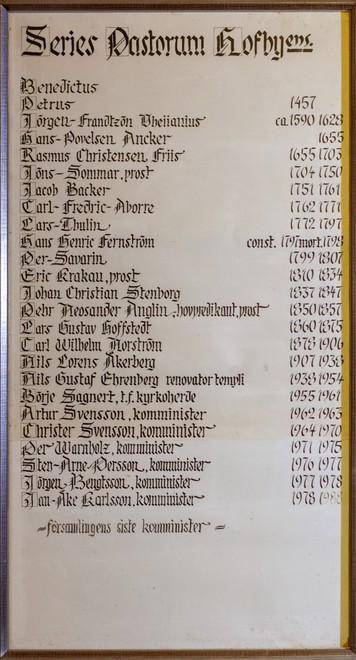 Series Pastorum Hofbyens.
Benedictus
Petrus 1457
Jörgen-Frandtzön Vheiianius ca.1590 1628
Hans-Povelsen Ancker 1655
Rasmus Christensen Friis 1655 1703
Jöns-Sommar, prost 1704 1750
Jacob Backer 1751 1761
Carl-Fredric-Aborre 1762 1771
Lars-Thulin 1772 1797
Hans Henric Fernström const. 1797 mort. 1798
Per-Savarin 1799 1807
Eric Krakau, prost 1810 1834
Johan Christian Stenborg 1837 1847
Pehr Neosander Anglin, hovpredikant, prost 1850 1857
Lars Gustav Hoffstedt 1860 1875
Carl Wilhelm Norström 1878 1906
Nils Lorens Åkerberg 1907 1938
Nils Gustaf Ehrenborg renovator templi 1938 1954
Börje Sagnert, t.f. kyrkoherde 1955 1961
Artur Svensson, komminister 1962 1963
Christer Svensson, komminister 1964 1970
Per Warnholz, komminister 1971 1975
Sten-Arne Persson, komminister 1976 1977
Jörgen Bengtsson, komminister 1977 1978
Jan-Åke Karlsson, komminister 1978
=församlingens siste komminister=